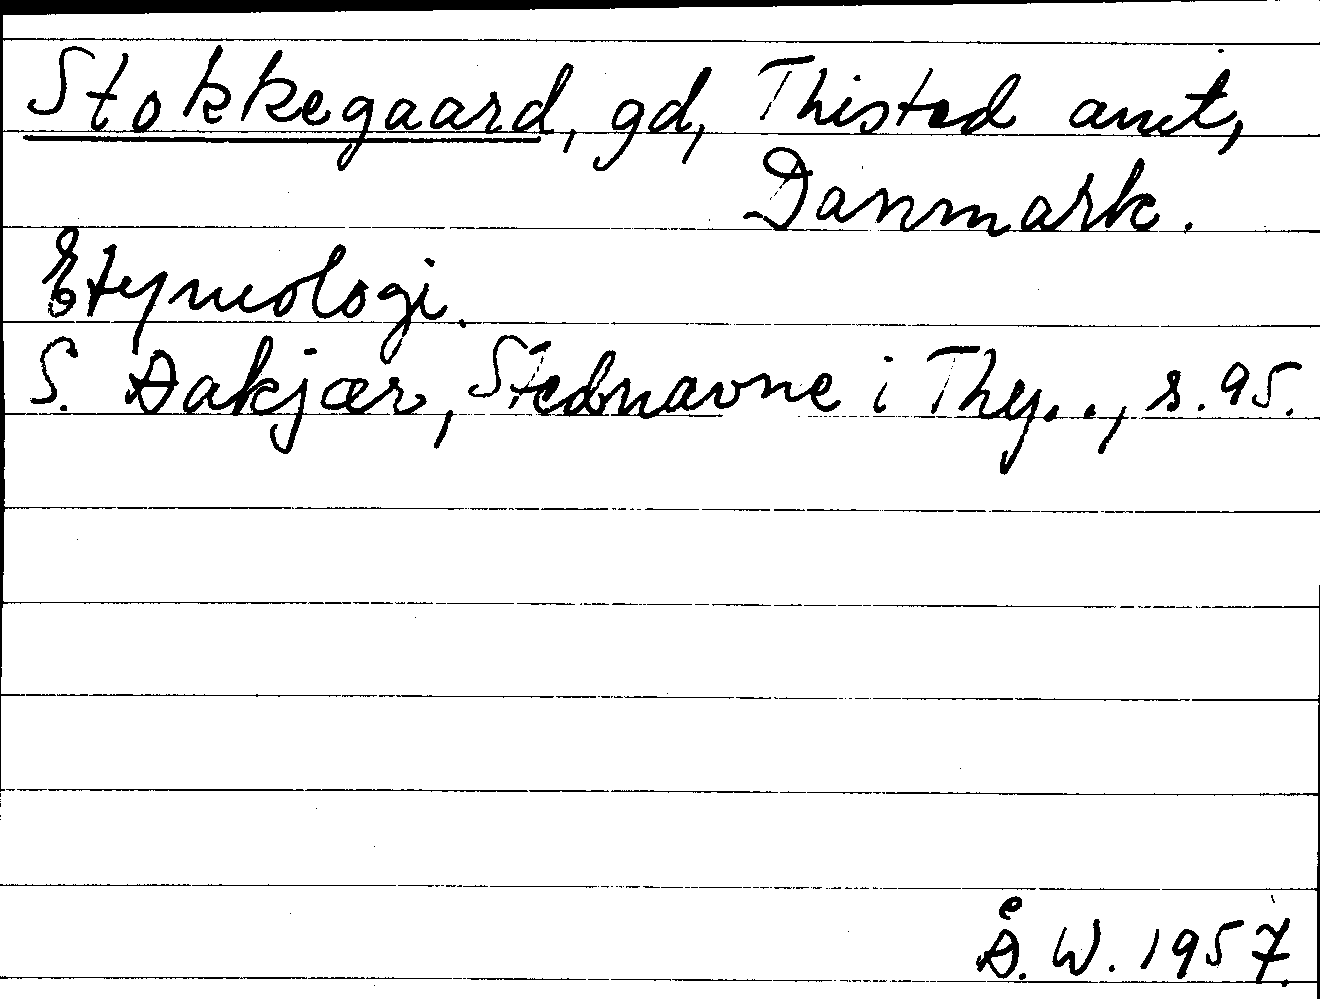 Stokkegaard, gd, Thisted amt,
Danmark.
Etymologi.
S. Aakjær, Stednavne i Thy.., s. 95.
Å. W. 1957.